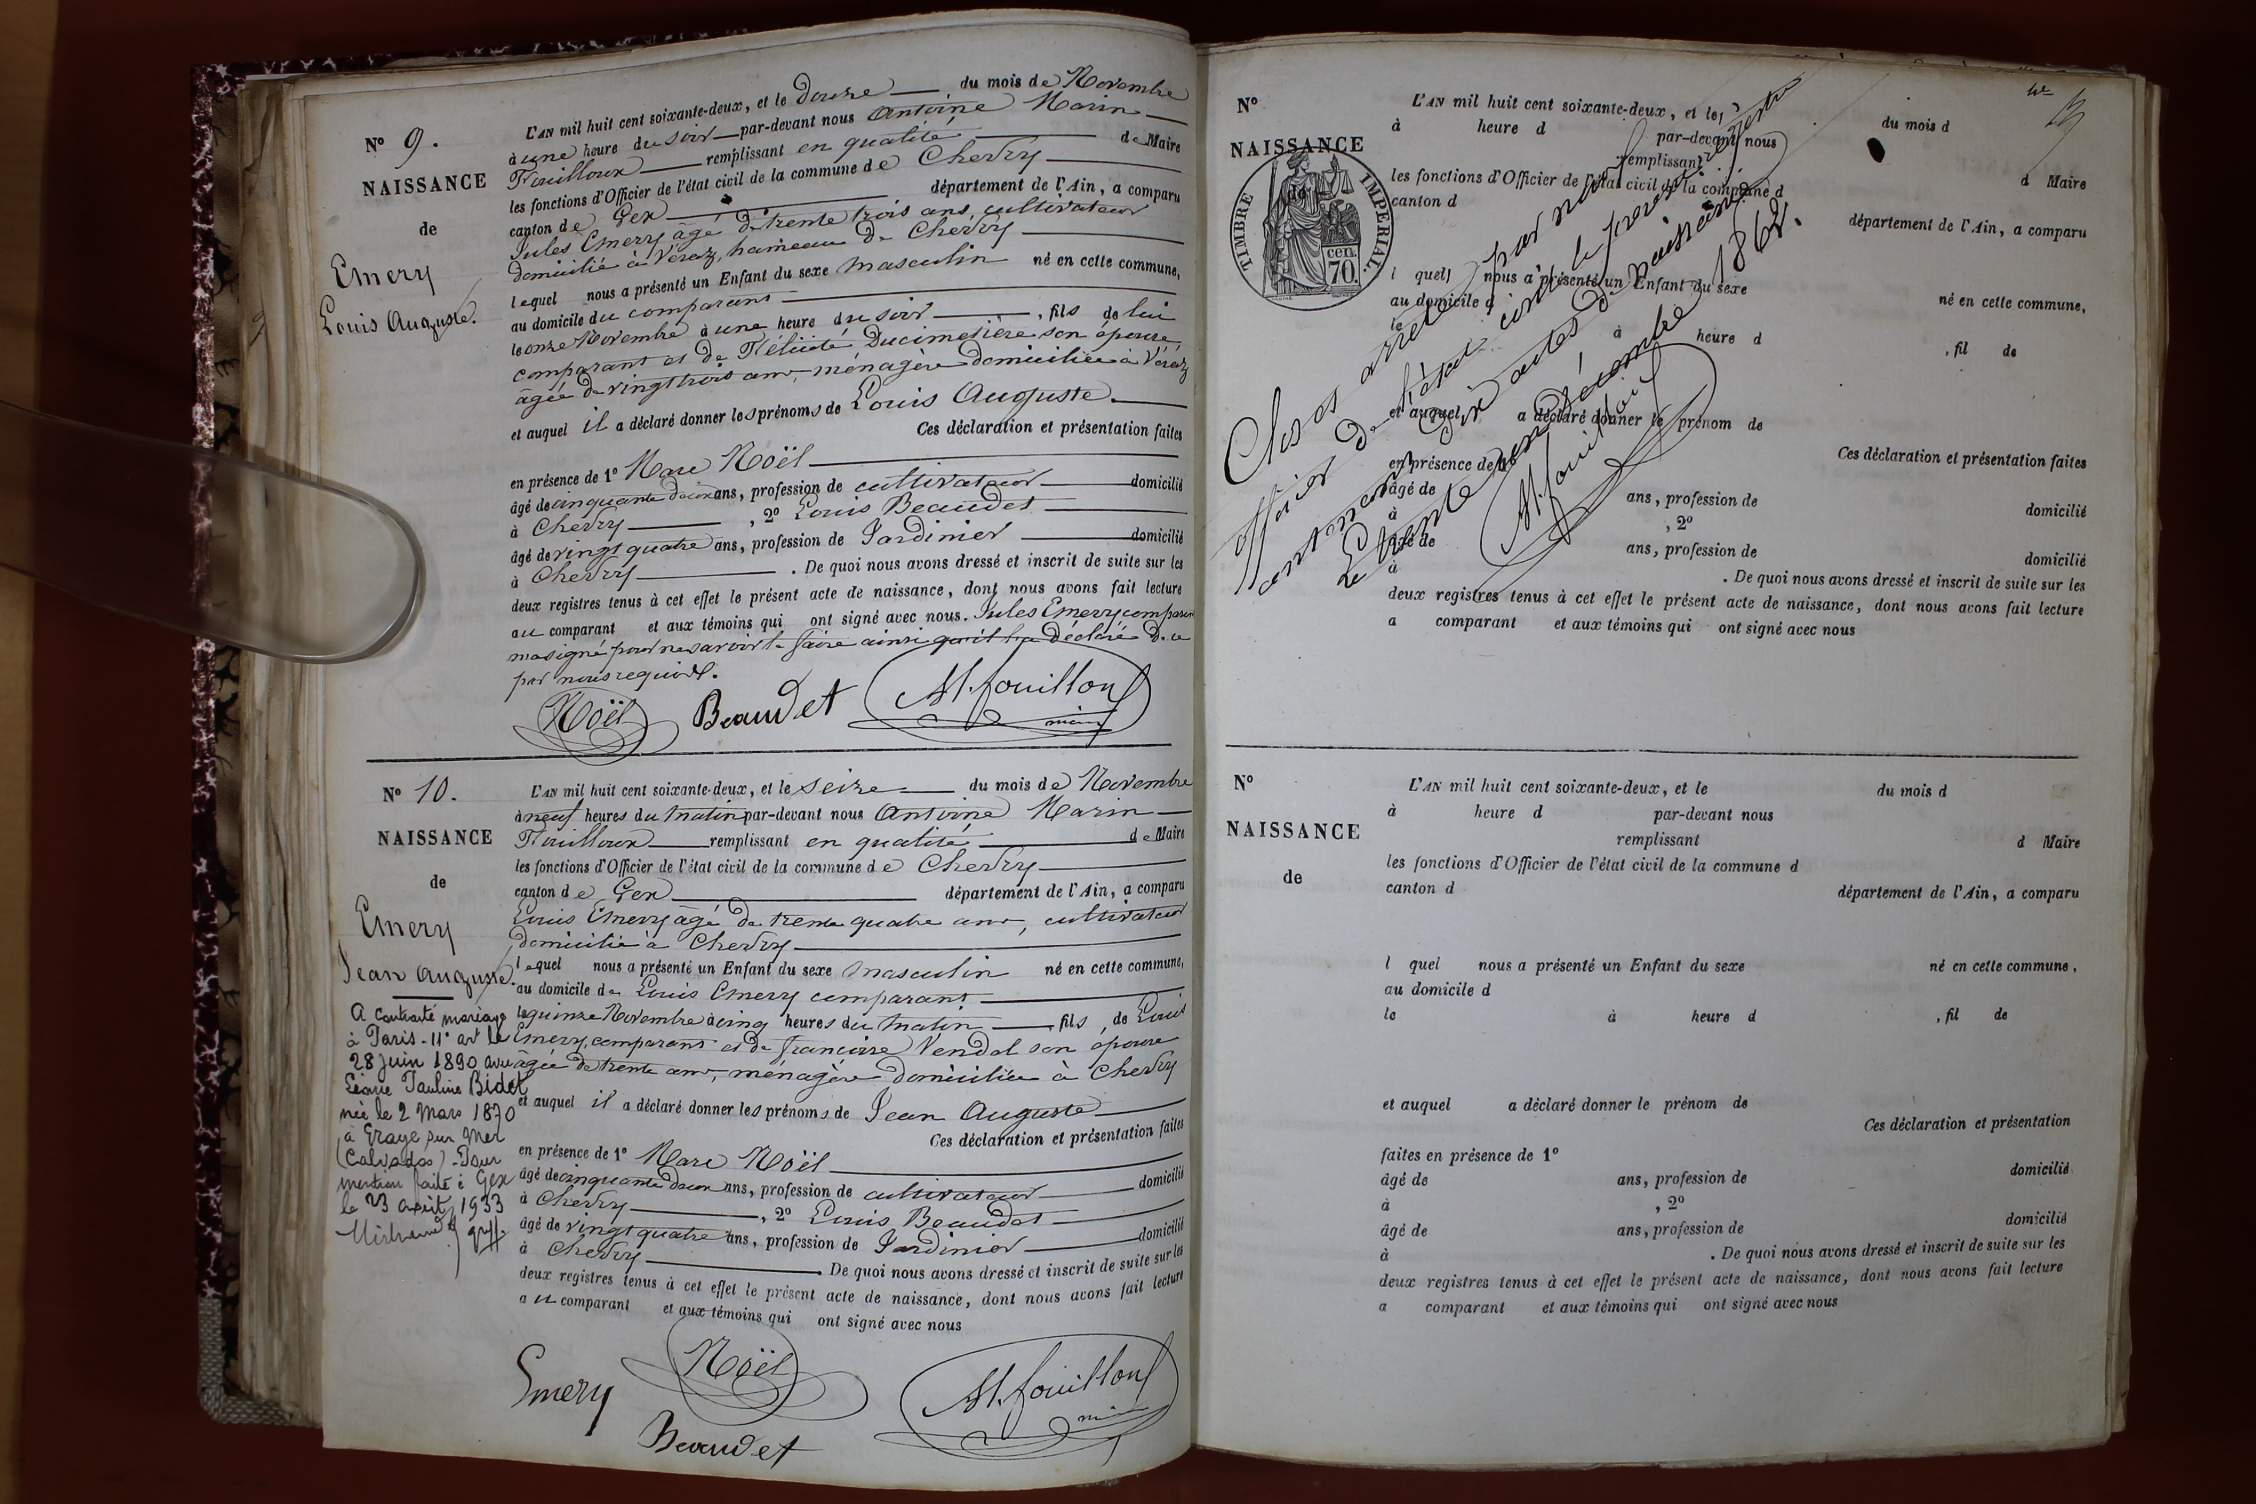 N° 9.
NAISSANCE
de
Emery
Louis Auguste.
L'AN mil huit cent soixante-deux, et le douze du mois de Novembre
à une heure du soir par-devant nous Antoine Marin
Fouilloux remplissant en qualité de Maire
les fonctions d'Officier de l'état civil de la commune de Chevry
canton de Gex département de l'Ain, a comparu
Jules Emery âgé de trente trois ans, cultivateur
domicilié à Véraz, hameau de Chevry
lequel nous a présenté un Enfant du sexe masculin né en cette commune,
au domicile du comparant
le onze Novembre à une heure du soir, fils de lui
comparant et de Félicité Ducimetière son épouse,
âgée de vingt trois ans, ménagère domiciliée à Véraz
et auquel il a déclaré donner les prénoms de Louis Auguste.
Ces déclaration et présentation faites
en présence de 1° Marc Noël
âgé de cinquante deux ans, profession de cultivateur domicilié
à Chevry, 2° Louis Beaudet
âgé de vingt quatre ans, profession de Jardinier domicilié
à Chevry. De quoi nous avons dressé et inscrit de suite sur les
deux registres tenus à cet effet le présent acte de naissance, dont nous avons fait lecture
au comparant et aux témoins qui ont signé avec nous. Jules Emery comparant
n'a signé pour ne savoir le faire ainsi qu'il l'a déclaré de ce
par nous requis.
Noël Beaudet M. fouilloux
maire
N° 10.
NAISSANCE
de
Emery
Jean Auguste.
A contracté mariage
à Paris-11e art le
28 juin 1890 avec
Léonie Pauline Bidet
née le 2 Mars 1870
à Graye sur Mer
(Calvados) - Pour
mention faite à Gex
le 23 août 1933
greff.
L'AN mil huit cent soixante-deux, et le seize du mois de Novembre
à neuf heures du matin par-devant nous Antoine Marin
Fouilloux remplissant en qualité de Maire
les fonctions d'Officier de l'état civil de la commune de Chevry
canton de Gex département de l'Ain, a comparu
Louis Emery âgé de trente quatre ans, cultivateur
domicilié à Chevry
lequel nous a présenté un Enfant du sexe masculin né en cette commune,
au domicile de Louis Emery comparant
le quinze Novembre à cinq heures du matin fils, de Louis
Emery, comparant et de françoise Vendel son épouse
âgée de trente ans, ménagère domiciliée à Chevry
et auquel il a déclaré donner les prénoms de Jean Auguste
Ces déclaration et présentation faites
en présence de 1° Marc Noël
âgé de cinquante deux ans, profession de cultivateur domicilié
à Chevry, 2° Louis Beaudet
âgé de vingt quatre ans, profession de Jardinier domicilié
à Chevry. De quoi nous avons dressé et inscrit de suite sur les
deux registres tenus à cet effet le présent acte de naissance, dont nous avons fait lecture
au comparant et aux témoins qui ont signé avec nous
Emery Noël M. fouilloux
Beaudet
N°
NAISSANCE
de
TIMBRE IMPÉRIAL.
70 cen.
L'AN mil huit cent soixante-deux, et le du mois d
à heure d par-devant nous
remplissant d Maire
les fonctions d'Officier de l'état civil de la commune d
canton d département de l'Ain, a comparu
l quel nous a présenté un Enfant du sexe né en cette commune,
au domicile d
le à heure d , fil de
et auquel a déclaré donner le prénom de
Ces déclaration et présentation faites
en présence de 1°
âgé de ans, profession de domicilié
à , 2°
âgé de ans, profession de domicilié
à . De quoi nous avons dressé et inscrit de suite sur les
deux registres tenus à cet effet le présent acte de naissance, dont nous avons fait lecture
a comparant et aux témoins qui ont signé avec nous
Clos et arrêté par nous
officier de l'état civil le présent registre
contenant dix actes de naissance
Le trente un décembre 1862.
M. fouilloux
N°
NAISSANCE
de
L'AN mil huit cent soixante-deux, et le du mois d
à heure d par-devant nous
remplissant d Maire
les fonctions d'Officier de l'état civil de la commune d
canton d département de l'Ain, a comparu
l quel nous a présenté un Enfant du sexe né en cette commune,
au domicile d
le à heure d , fil de
et auquel a déclaré donner le prénom de
Ces déclaration et présentation
faites en présence de 1°
âgé de ans, profession de domicilié
à , 2°
âgé de ans, profession de domicilié
à . De quoi nous avons dressé et inscrit de suite sur les
deux registres tenus à cet effet le présent acte de naissance, dont nous avons fait lecture
a comparant et aux témoins qui ont signé avec nous